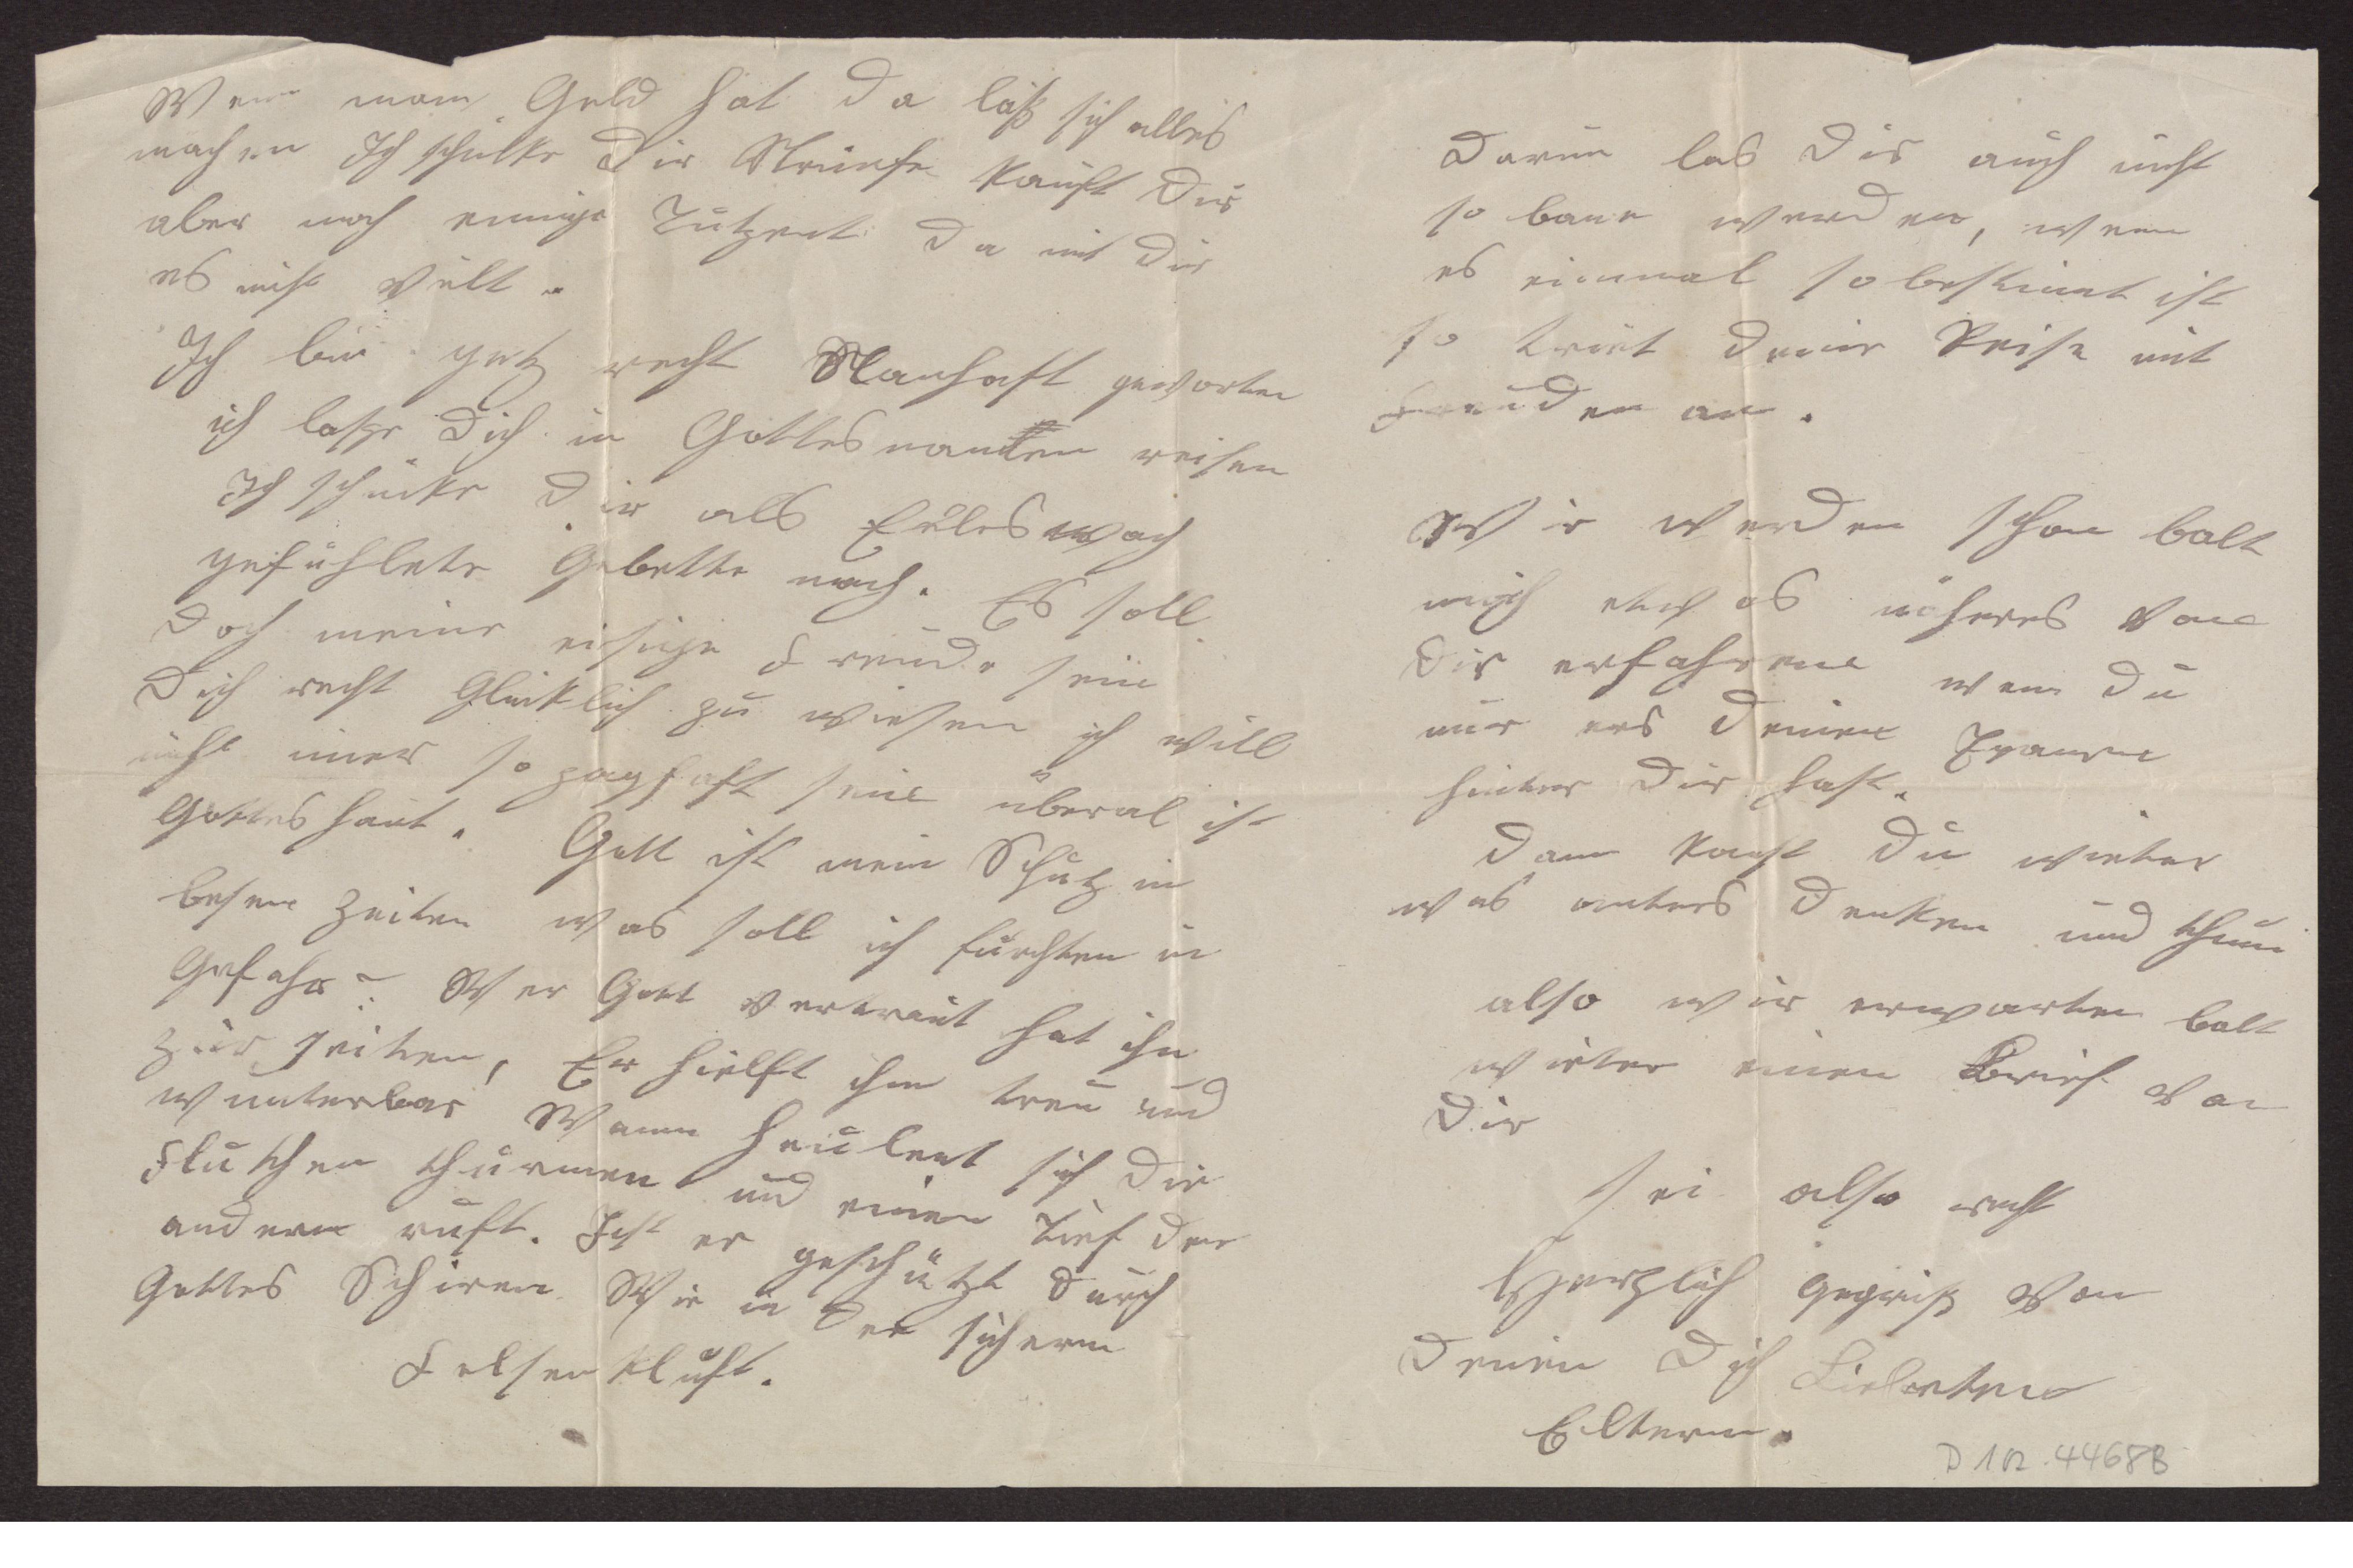 Wen man Geld hat da läß sich alles
machen Ich schulke Dir Strümfe Kauft Dir
aber noch einige Tutzent da mit Dir
es nicht vält.
Ich bin yetz recht Stanhaft geworten
ich laße Dich in Gottesnamen reisen
Ich schücke Dir als Edles
gefühlete Gebette nach. Es soll
doch meine eisige Freude sein
Dich recht Glücklich zu wiesen ich will
nicht imer so zaghaft sein überal ist
Gottes hant. Gott ist mein Schutz in
besen Zeiten was soll ich fürchten in
Gefahr? Wer Gott vertraut hat ihn
zur seiten, Er hielft ihm treu und
wunterbar Wann heulent sich die
Fluthen thürmen und einen Tief den
andern ruft. Ist er geschützt durch
Gottes Schiren Wie in der sichern
Felsenkluft.
Darum las Dir auch nicht
so bane werden, wenn
es einmal so bestimt ist
so triet deine Reise mit
Freuden an.
Wir werden schon balt
mich etwas näheres von
Dir erfahrene wen Du
nur ers deinen Exame
hinter Dir hast.
Dann kanst Du wieter
was anters denken und thun
also wir erwarten balt
wieter einen Brief von
Dir
sei also recht
Herzlich gegrüß von
Deinen Dich Liebenten
Eltern.
D 1n. 4468B